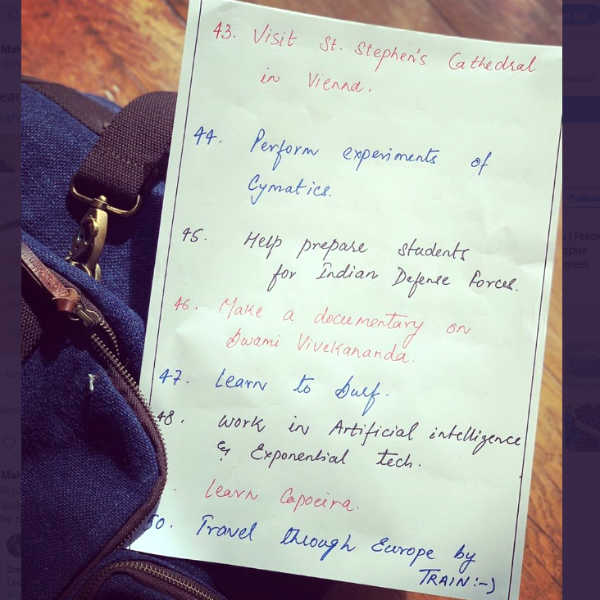 43. Visit St. Stephen's Cathedral
in Vienna.
44. Perform experiments of
Cymatics.
45. Help prepare students
for Indian Defense forces.
46. Make a documentary on
Swami Vivekananda.
47. Learn to Surf.
48. Work in Artificial intelligence
& Exponential tech.
Learn Capoeira.
50. Travel through Europe by
TRAIN :-)